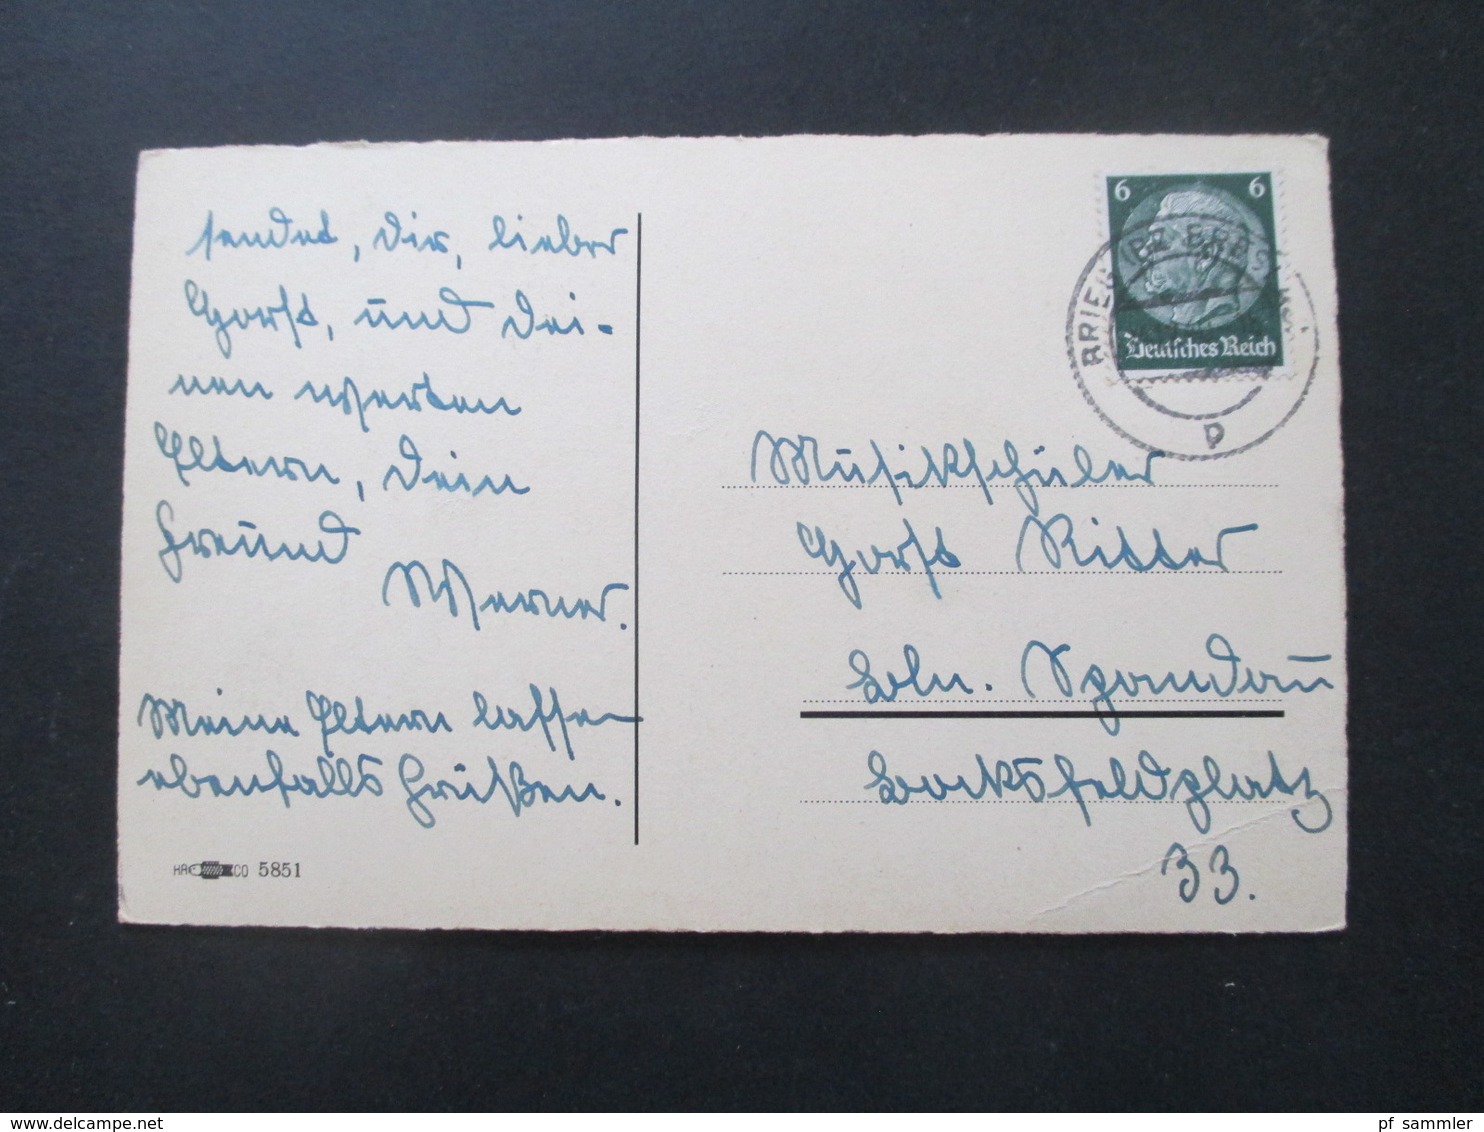 sendet, Dir, lieber
Horst, und Dei-
nen werten
Eltern, Dein
Freund
Werner.
Meine Eltern lassen
ebenfalls Grüßen.
HR CO 5851
6 6
Deutsches Reich
BRIEG (BZ BRESLAU)
p
Musikschüler
Horst Ritter
Bln. Spandau
Bocksfeldplatz
33.
pf_sammler
www.delcampe.net